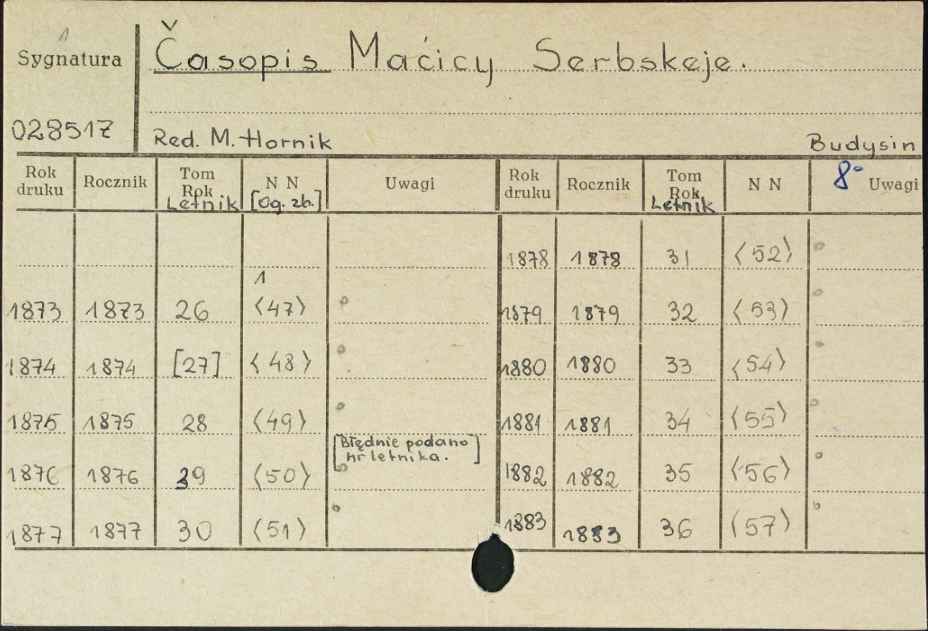 1
Sygnatura Časopis Maćicy Serbskeje.
028517 Red. M. Hornik Budysin
Rok druku Rocznik Tom Rok Letnik N N [Og. zb.] Uwagi Rok druku Rocznik Tom Rok Letnik N N 8° Uwagi
1878 1878 31 <52>
1
1873 1873 26 <47> 1879 1879 32 <53>
1874 1874 [27] <48> 1880 1880 33 <54>
1875 1875 28 <49> 1881 1881 34 <55>
[Błędnie podano
nr letnika.]
1876 1876 39 <50> 1882 1882 35 <56>
1877 1877 30 <51> 1883 1883 36 <57>